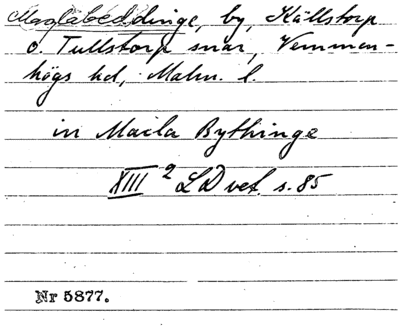 Maglabeddinge, by, Källstorp
o. Tullstorp snar, Vemmen-
högs hd, Malm. l.
in Macla Bythinge
XIII 2 LD vet. s. 85
Nr 5877.